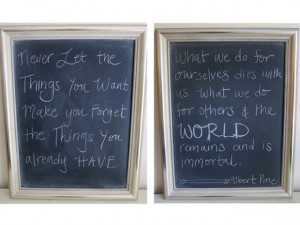 Never Let the
Things You Want
Make you Forget
the Things You
already HAVE
What we do for
ourselves dies with
us what we do
for others & the
WORLD
remains and is
immortal.
Albert Pine